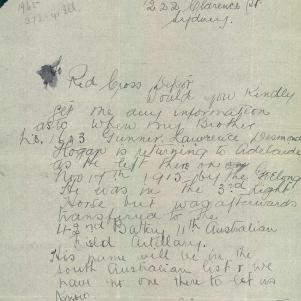 222 Clarence St
Sydney.
Red Cross Depot
Would you Kindly
get me any information
as to when my Brother
No. 1943 Gunner Lawrence Desmond
Hogan is returning to Adelaide
as he left there on
Nov 17th 1915 by the Geelong
He was in the 3rd Light
Horse but was afterwards
transferred to the
42nd Battery 11th Australian
Field Artillery.
His name will be in the
South Australian list & we
have no one there to let us
know